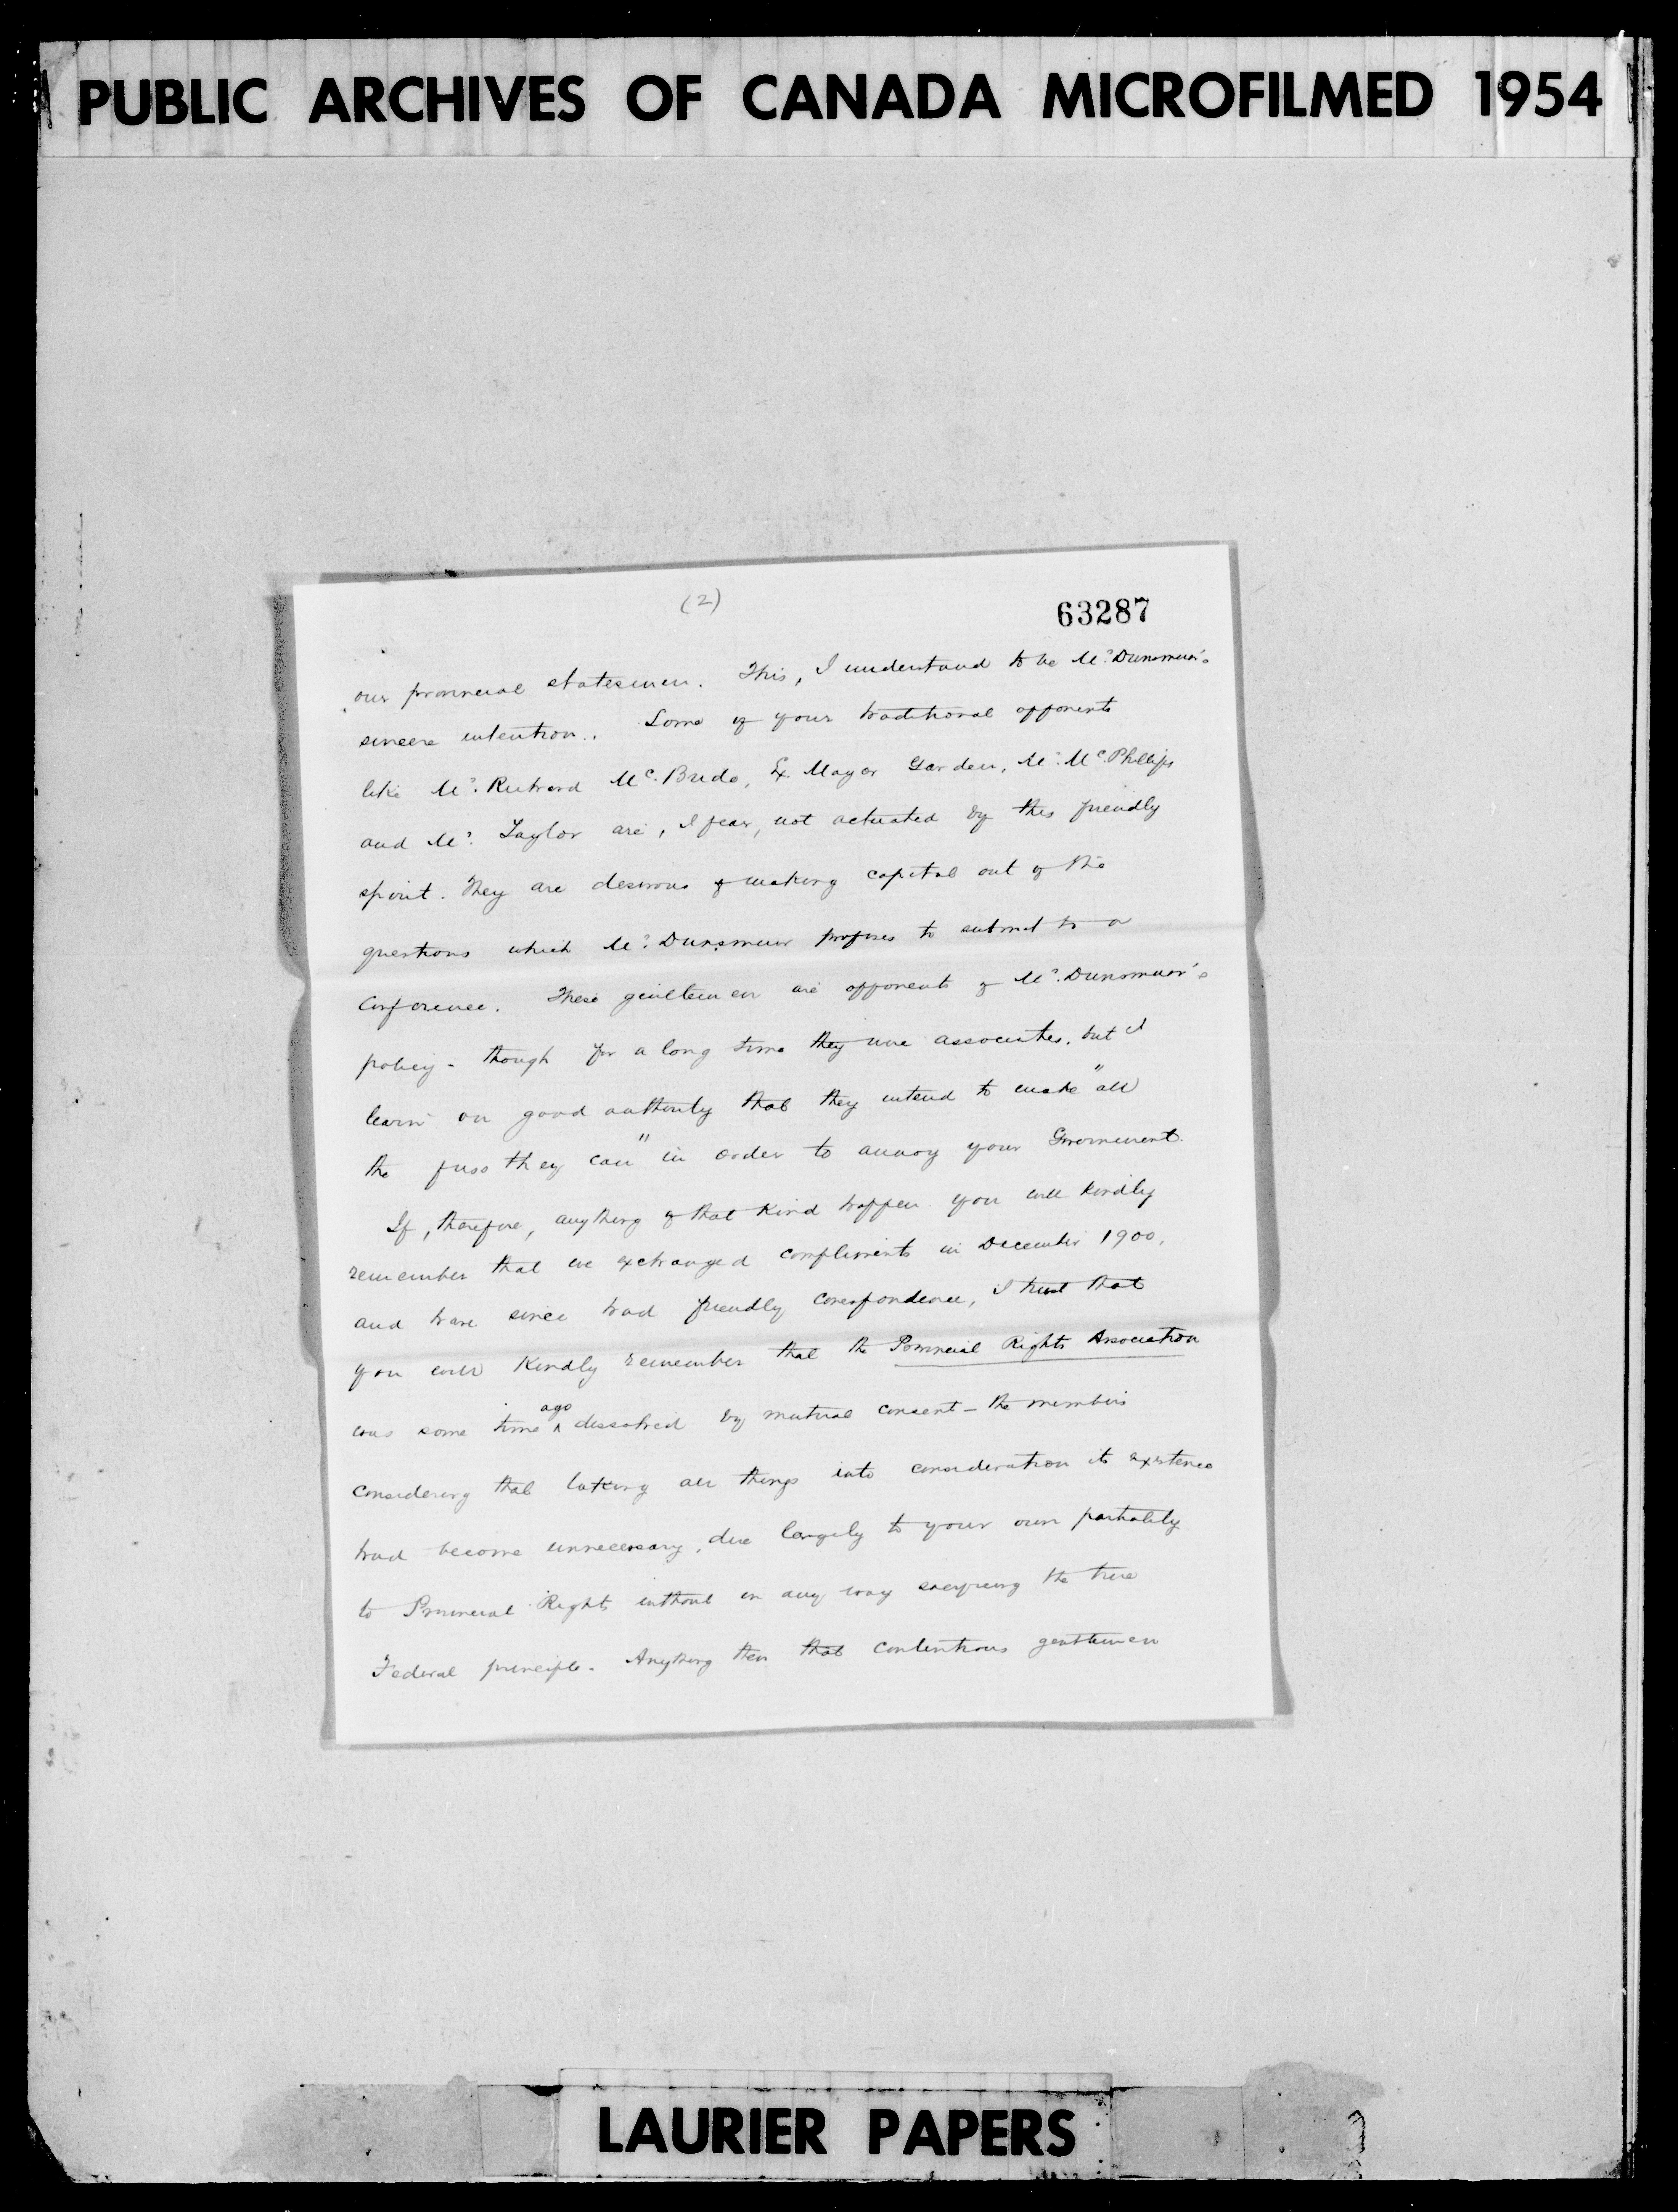 PUBLIC ARCHIVES OF CANADA MICROFILMED 1954
(2)
63287
our provincial statesmen. This, I understand to be Mr. Dunsmuir's
sincere intention. Some of your traditional opponents
like Mr. Richard McBride, Ex. Mayor Garden, Mr. McPhillips
and Mr. Taylor are, I fear, not actuated by this friendly
spirit. They are desirous of making capital out of the
questions which Mr. Dunsmuir proposes to submit to a
Conference. These gentlemen are opponents of Mr. Dunsmuir's
policy - though for a long time they were associates, but I
learn on good authority that they intend to make "all
the fuss they can" in order to annoy your Government.
If, therefore, anything of that kind happen you will kindly
remember that we exchanged compliments in December 1900,
and have since had friendly correspondence, I trust that
you will kindly remember that the Provincial Rights Association
was some time ago dissolved by mutual consent - the members
considering that taking all things into consideration its existence
had become unnecessary, due largely to your own partiality
to Provincial Rights without in any way sacrificing the true
Federal principle. Anything then that contentious gentlemen
LAURIER PAPERS